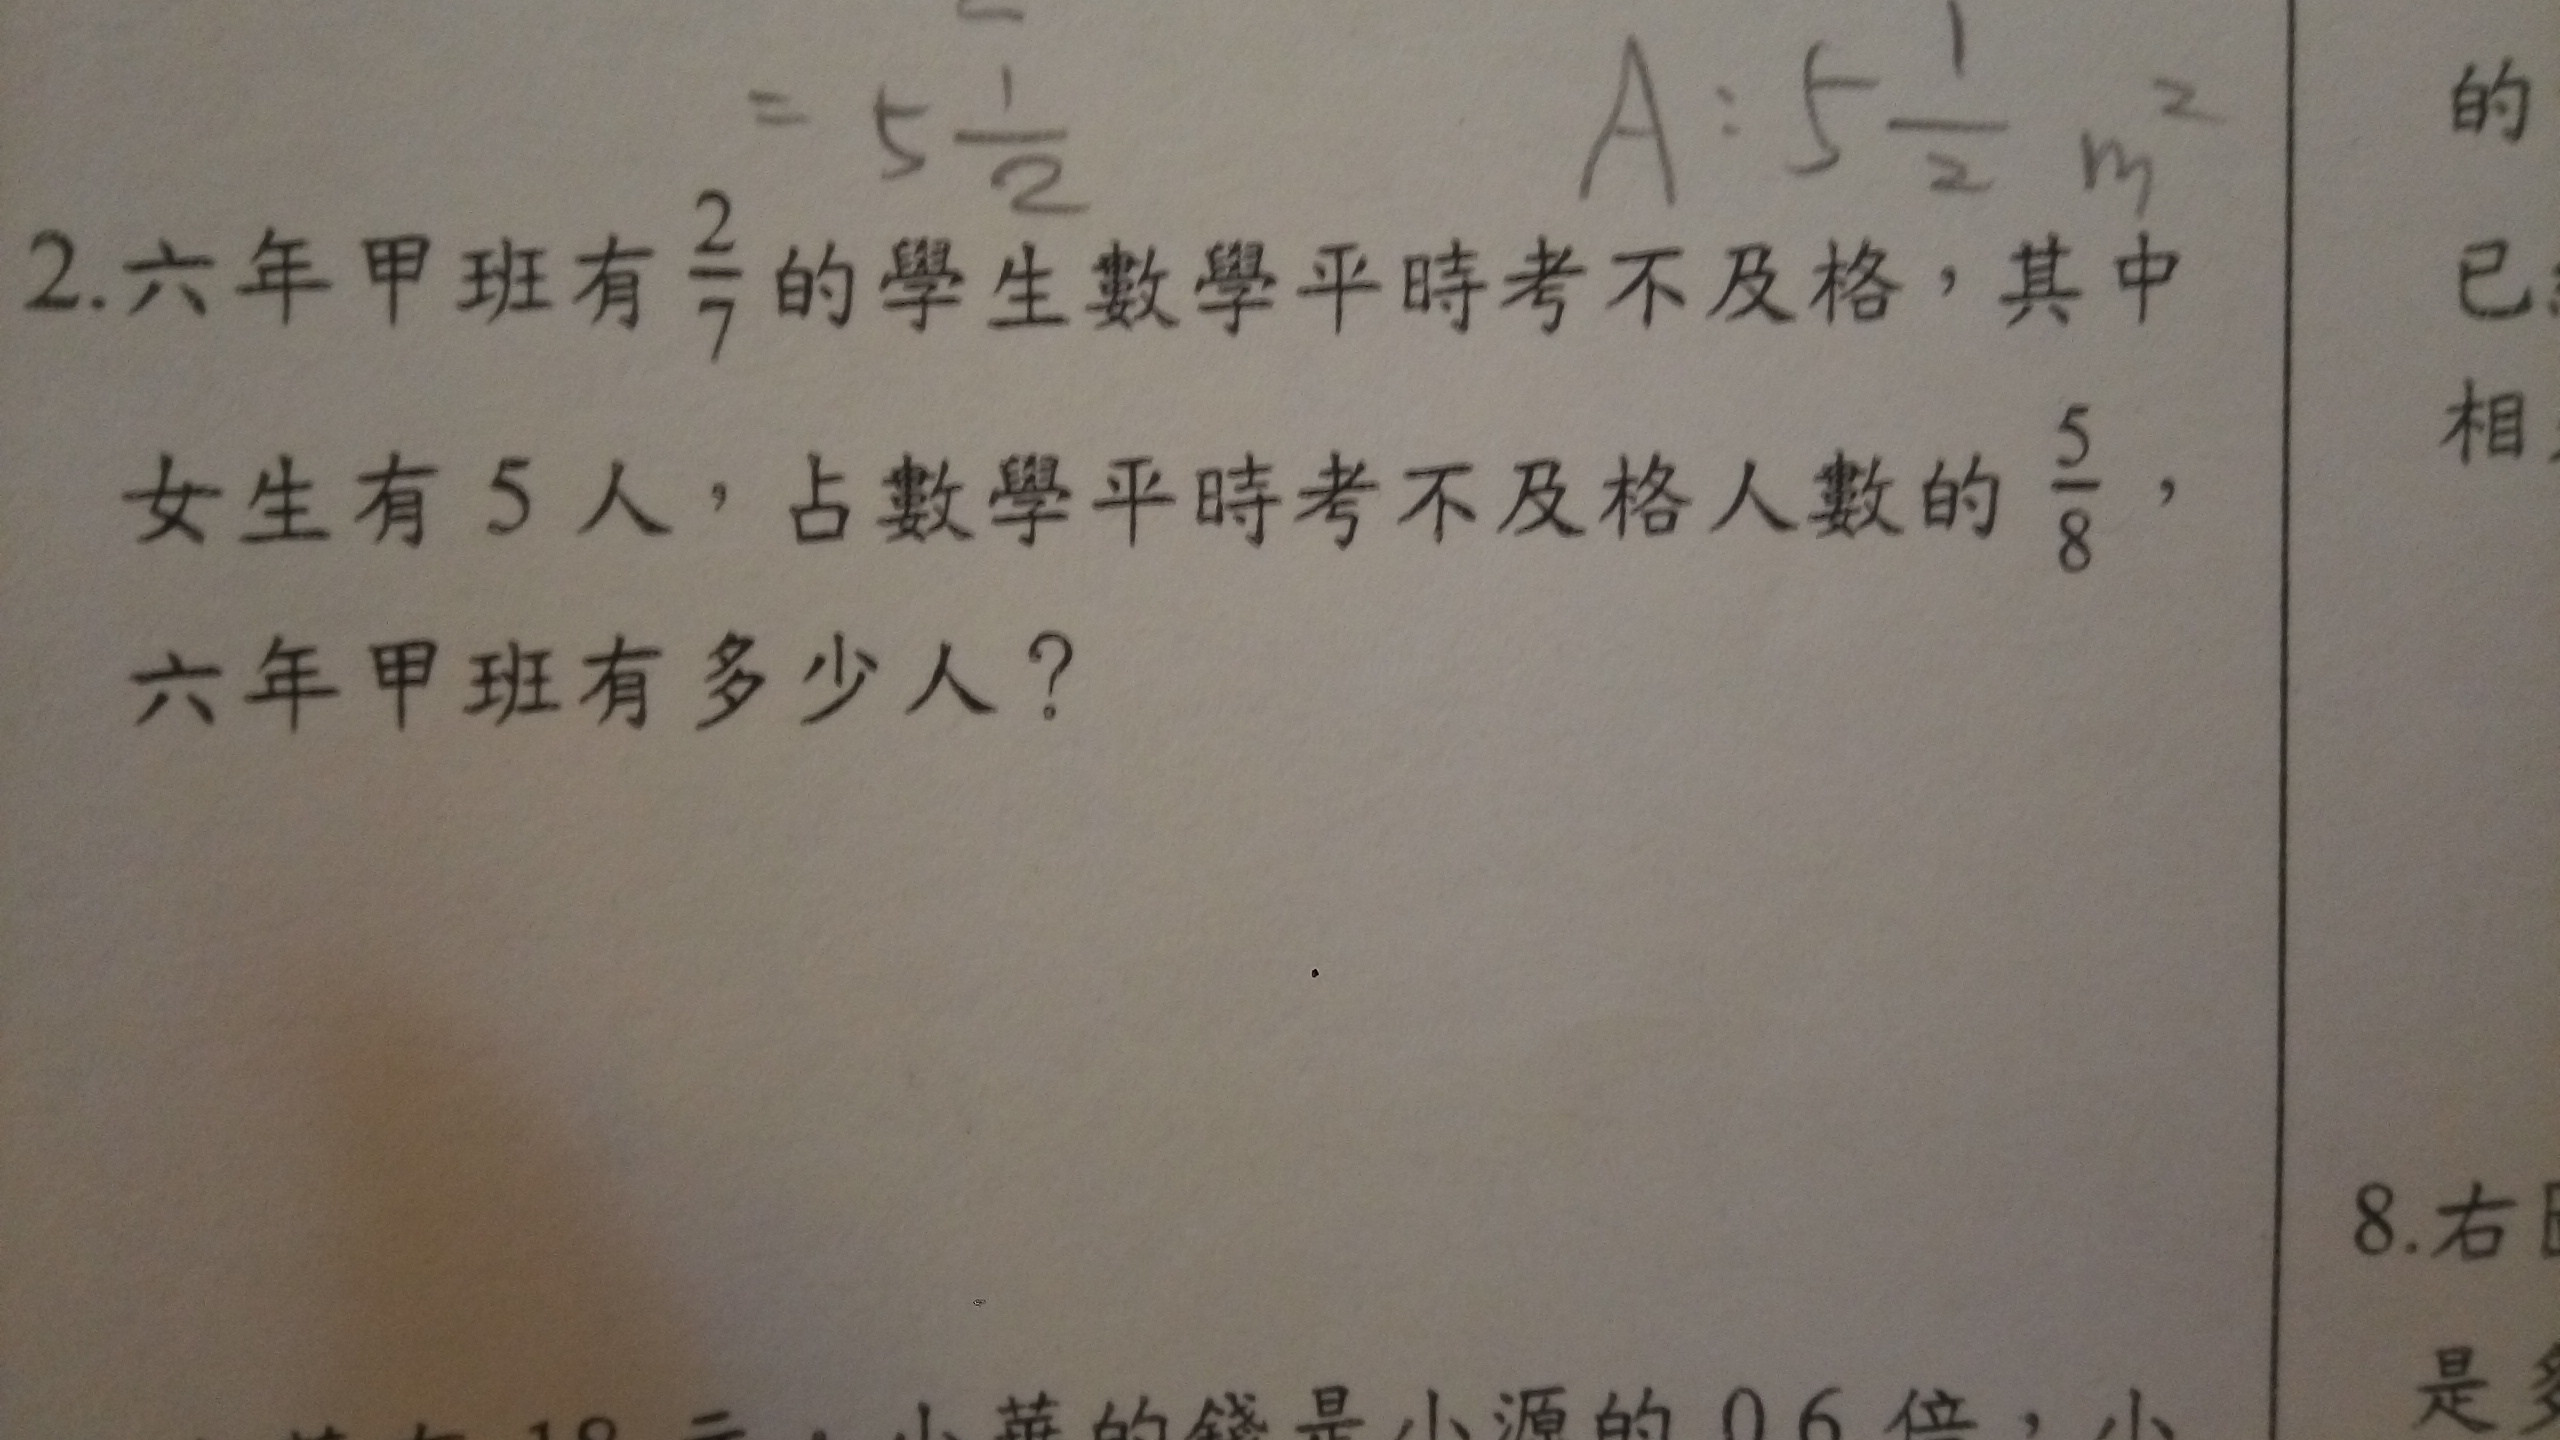 = 5 1/2
A: 5 1/2 m²
2.六年甲班有 2/7 的學生數學平時考不及格，其中
女生有 5 人，占數學平時考不及格人數的 5/8，
六年甲班有多少人？
元，小華的錢是小源的 0.6 倍，小
的
已
相
8.右
是多